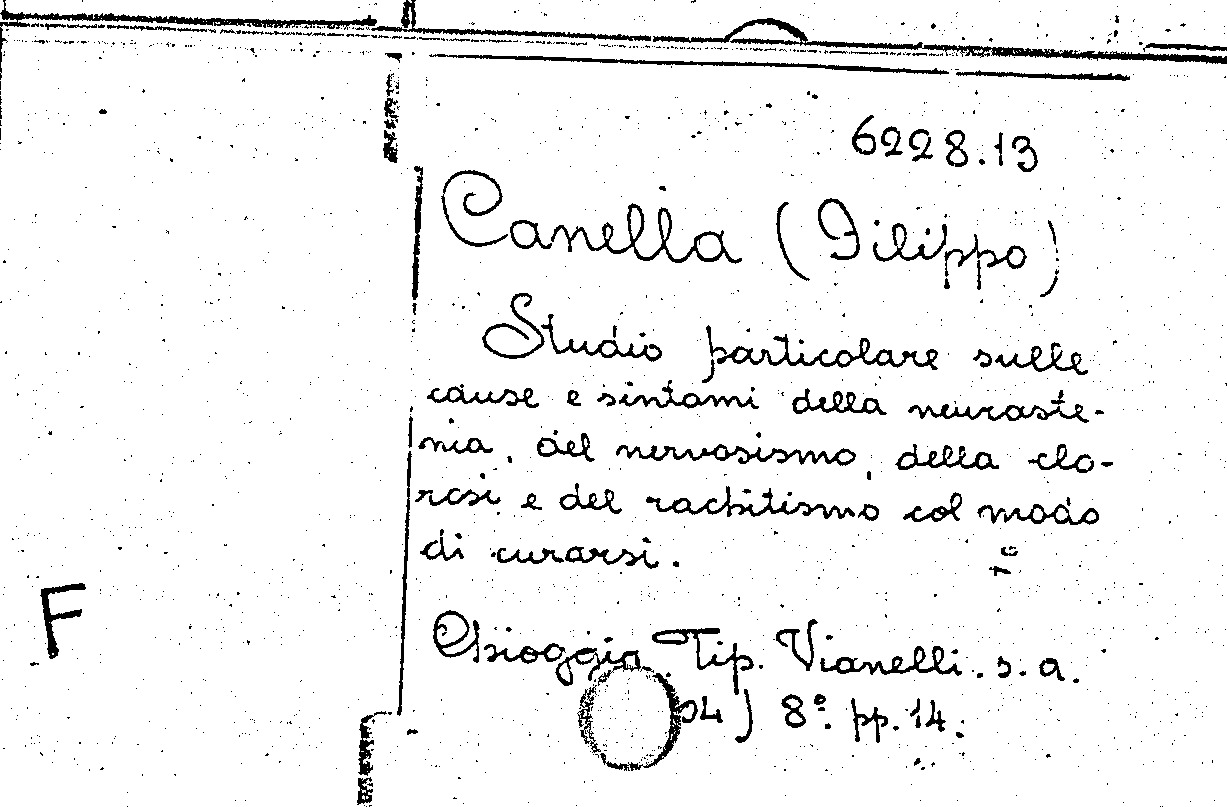 6228.13
Canella (Filippo)
Studio particolare sulle
cause e sintomi della neuraste-
nia, del nervosismo, della clo-
rosi e del rachitismo col modo
di curarsi.
F
Chioggia Tip. Vianelli. s. a.
04) 8º. pp. 14.